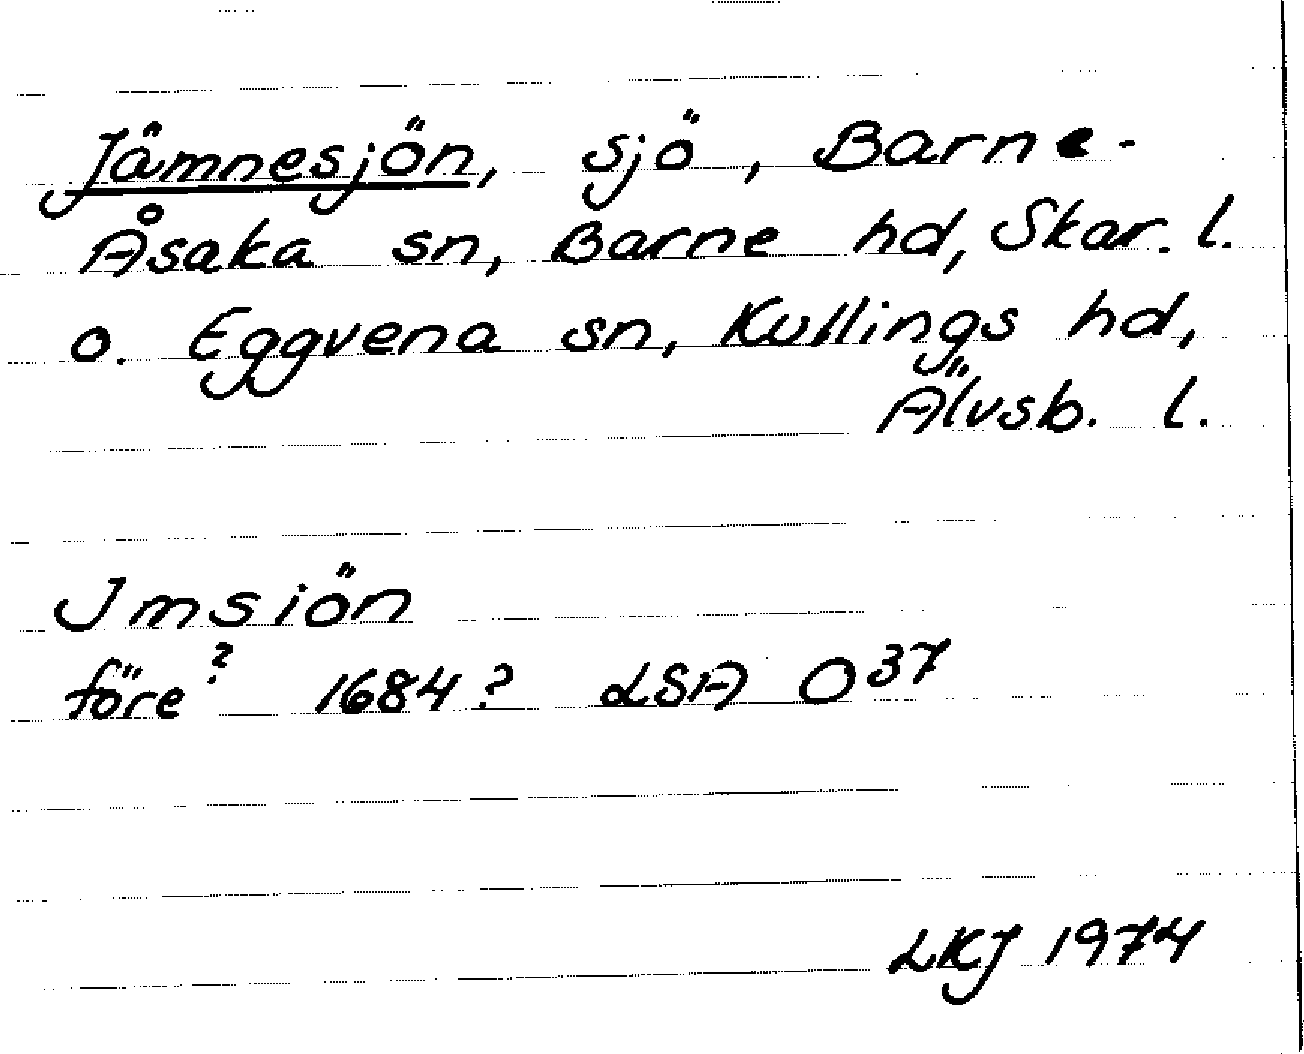 Jämnesjön, sjö, Barne-
Åsaka sn, Barne hd, Skar. l.
o. Eggvena sn, Kullings hd,
Älvsb. l.
Jmsiön
före? 1684? LSA O37
LKJ 1974